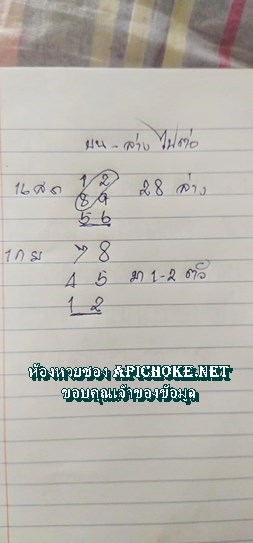 บน - ล่าง ไปต่อ
1 2
8 9 28 ล่าง
5 6
7 8
4 5 มา 1-2 ตัว
1 2
ห้องหวยซอง APICHOKE.NET
ขอบคุณเจ้าของข้อมูล